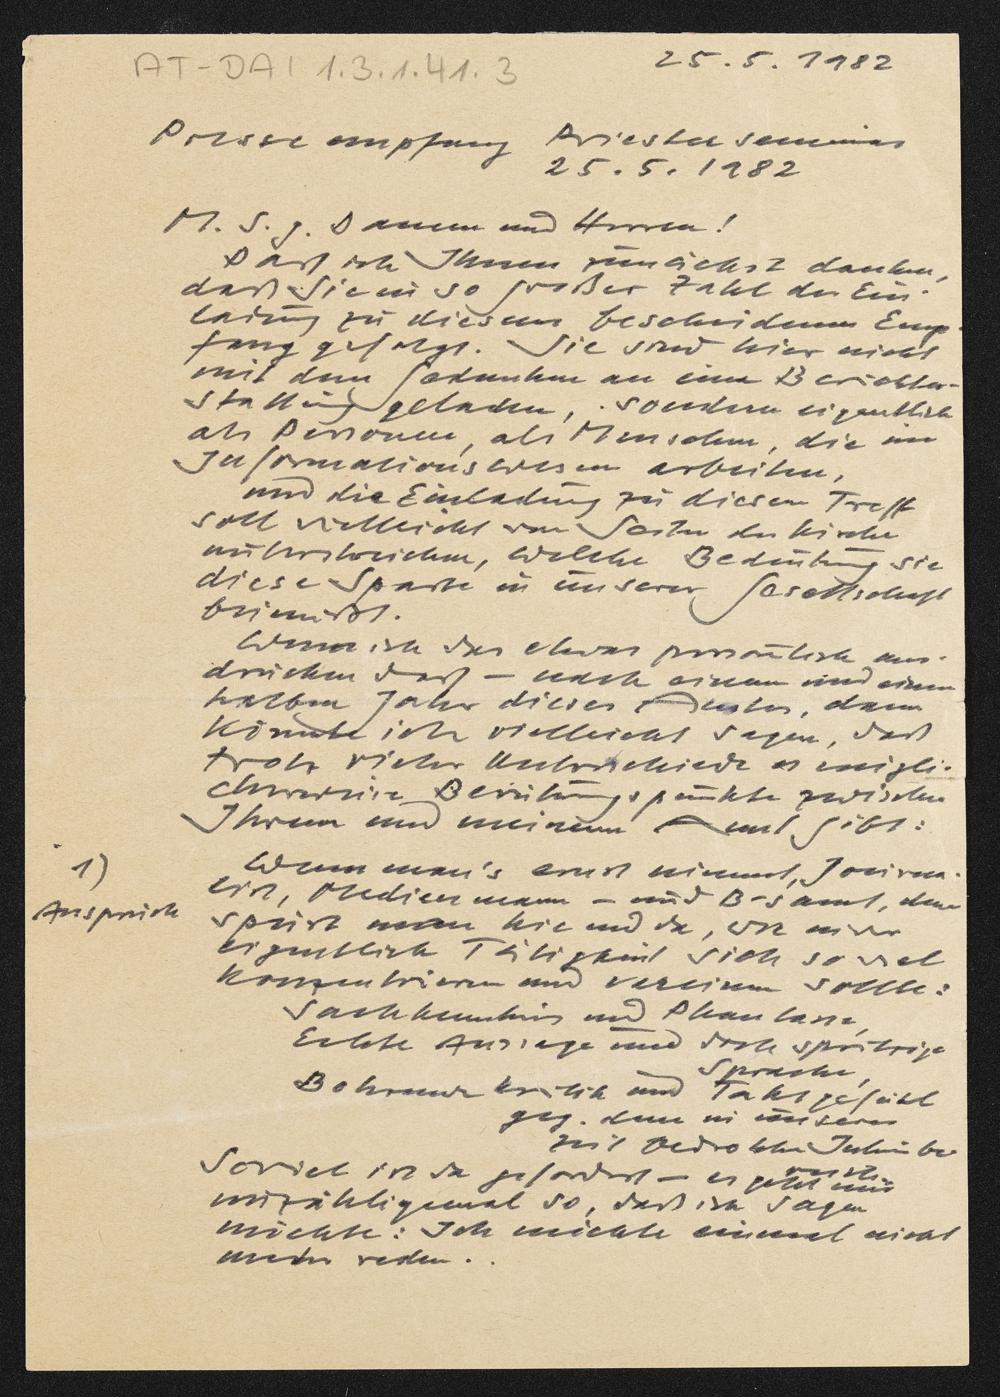 AT-DAI 1.3.1.41.3
25.5.1982
Presseempfang Priesterseminar
25.5.1982
M. S. g. Damen und Herren!
Darf ich Ihnen zunächst danken,
daß Sie in so großer Zahl der Ein-
ladung zu diesem bescheidenen Emp-
fang gefolgt. Sie sind hier nicht
mit dem Gedanken an eine Berichter-
stattung geladen, sondern eigentlich
als Personen, als Menschen, die im
Informationswesen arbeiten,
und die Einladung zu diesem Treff
soll vielleicht von Seiten der Kirche
unterstreichen, welche Bedeutung sie
diese Sparte in unserer Gesellschaft
beimißt.
Wenn ich das etwas persönlich aus-
drücken darf – nach einem und einem
halben Jahr dieses Amtes, dann
könnte ich vielleicht sagen, daß
trotz vieler Unterschiede es mögli-
cherweise Berührungspunkte zwischen
Ihrem und meinem Amt gibt:
1)
Anspruch
Wenn man's ernst nimmt, Journa-
list, Medienmann – und B-samt, dann
spürt man hie und da, was in der
eigentlich Tätigkeit sich so viel
konzentrieren und vereinen sollte:
Sachkenntnis und Phantasie,
Echte Aussage und doch spritzige
Sprache,
Bohrende Kritik und Taktgefühl
geg. dem in unserer
Zeit bedrohten
Soviel ist da gefordert – es geht mir
unzähligemal so, daß ich sagen
möchte: Ich möchte einmal nicht
mehr reden..